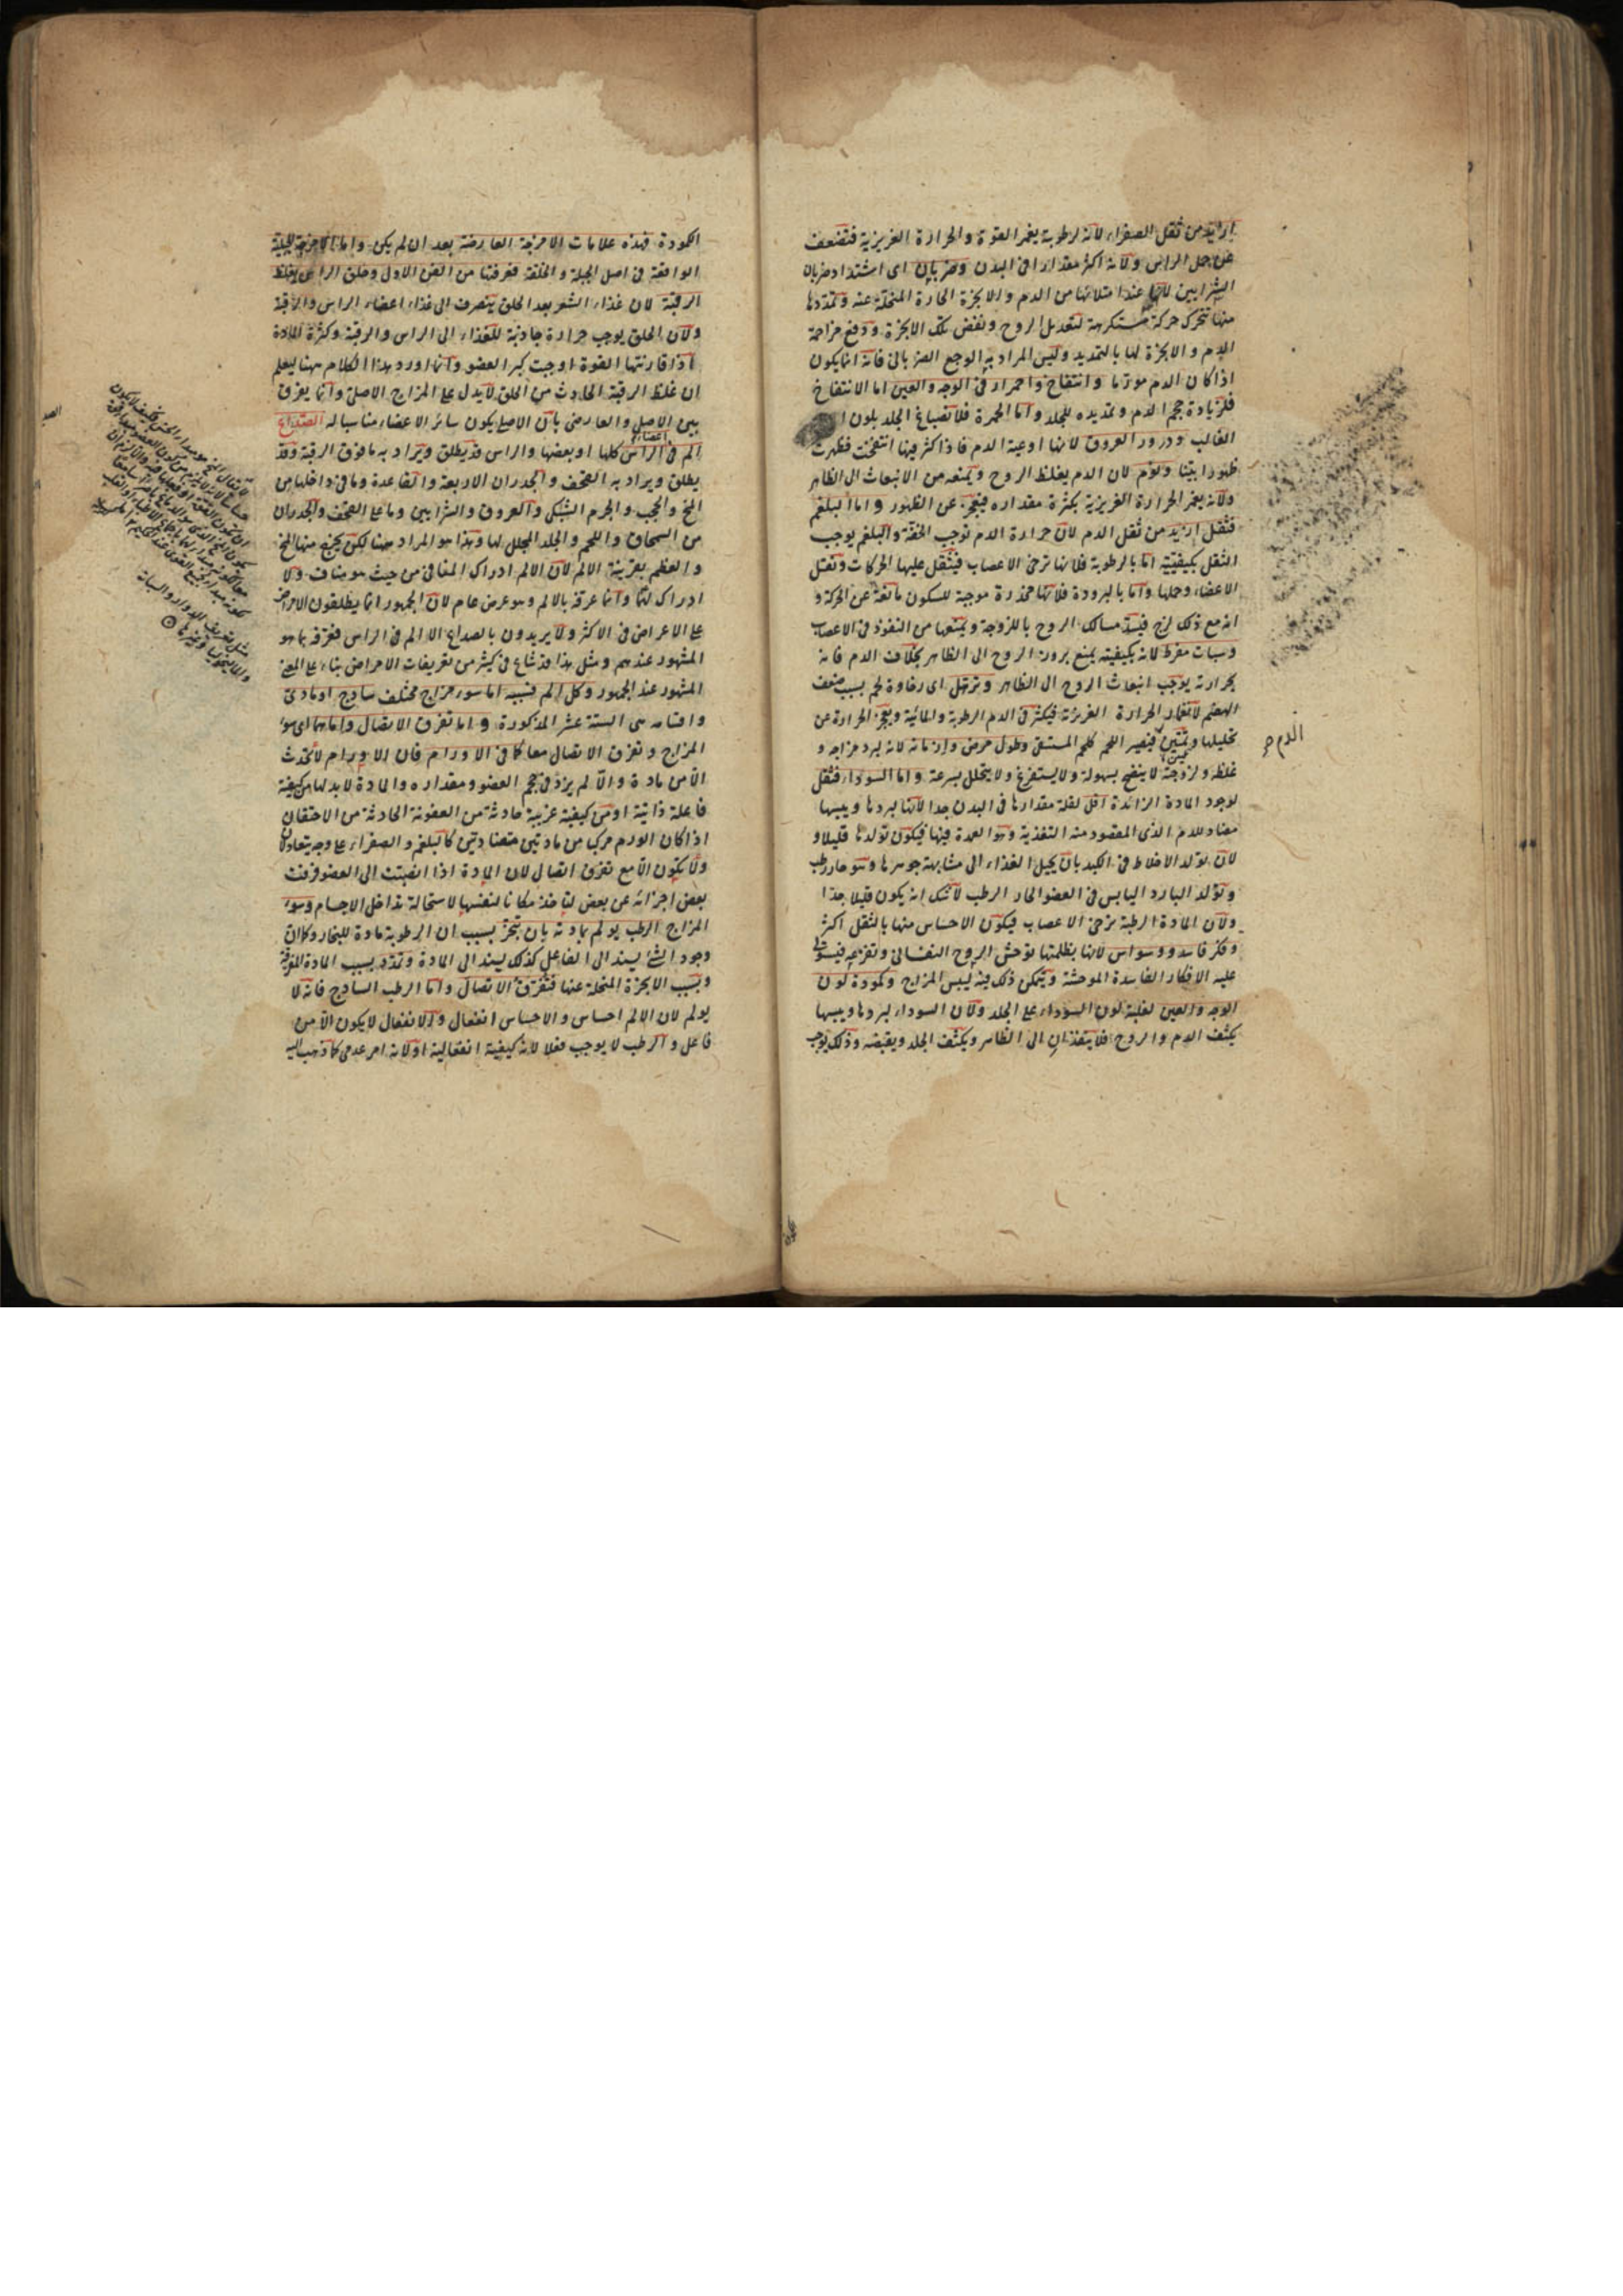 ازيد من ثقل الصفراء لانه لرطوبة يغمر القوة والحرارة الغريزية فتضعف
عن حمل الراس ولانه اكثر مقدارا فى البدن وضربان اى اشتداد ضربان
الشرايين لانها عند امتلائها من الدم والابخرة الحارة المنحلة عنه وتمددها
منها تتحرك حركة مستكرهة لتعديل الروح ونفض تلك الابخرة ودفع مزاحمة
الدم والابخرة لها بالتمديد وليس المراد به الوجع الضربانى فانه انما يكون
اذا كان الدم مورّما وانتفاخ واحمرار فى الوجه والعين اما الانتفاخ
فلزيادة حجم الدم وتمديده للجلد واما الحمرة فلانصباغ الجلد بلون
الغالب ودرور العروق لانها اوعية الدم فاذا كثر فيها انتفخت فظهرت
ظهورا بيّنا ونوم لان الدم يغلظ الروح ويمنعه من الانبعاث الى الظاهر
ولانه يغمر الحرارة الغريزية بكثرة مقداره فيعجز عن الظهور واما البلغم
فثقل ازيد من ثقل الدم لان حرارة الدم توجب الخفة والبلغم يوجب
الثقل بكيفيتيه اما بالرطوبة فلانها ترخى الاعصاب فيثقل عليها الحركات وتقل
الاعضاء وحملها واما بالبرودة فلانها مخدرة موجبة للسكون مانعة عن الحركة و
انه مع ذلك لزج فيسد مسالك الروح باللزوجة ويمنعها من النفوذ فى الاعصاب
وسبات مفرط لانه بكيفيته يمنع بروز الروح الى الظاهر بخلاف الدم فانه
بحرارته يوجب انبعاث الروح الى الظاهر وترهل اى رخاوة لحم بسبب ضعف
الهضم لانغمار الحرارة الغريزية فيكثر فى الدم الرطوبة والمائية ويعجز الحرارة عن
تحليلها فيصير اللحم كلحم المستسقى وطول مرض وازمانه لانه لبرد مزاجه و
غلظه ولزوجته لا ينضج بسهولة ولا يستفرغ ولا يتحلل بسرعة واما السوداء فثقل
لوجود المادة الزائدة اقل لقلة مقدارها فى البدن جدا لانها لبردها ويبسها
مضاد للدم الذى المقصود منه التغذية وهو العمدة فيها فيكون تولدها قليلا و
لان تولد الاخلاط فى الكبد بان يحيل الغذاء الى مشابهة جوهرها وهو حار رطب
وتولد البارد اليابس فى العضو الحار الرطب لا شك انه يكون قليلا جدا
ولان المادة الرطبة ترخى الاعصاب فيكون الاحساس منها بالثقل اكثر
وفكر فاسد ووسواس لانها بظلمتها توحش الروح النفسانى وتفزعه فيستولى
عليه الافكار الفاسدة الموحشة ويتمكن ذلك فيه ليبس المزاج وكمودة لون
الوجه والعين لغلبة لون السوداء على الجلد ولان السوداء لبردها ويبسها
يكثف الدم والروح فلا ينفذان الى الظاهر ويكثف الجلد ويقبضه وذلك يوجب
الدم
الكمودة فهذه علامات الامزجة العارضة بعد ان لم يكن واما الامزجة الجبلية
الواقعة فى اصل الجبلة والخلقة فعرفتها من الفن الاول وحلق الراس يغلظ
الرقبة لان غذاء الشعر بعد الحلق ينصرف الى غذاء اعضاء الراس والرقبة
ولان الحلق يوجب حرارة جاذبة للغذاء الى الراس والرقبة وكثرة المادة
اذا قارنتها القوة اوجبت كبر العضو وانما اورد هذا الكلام ههنا ليعلم
ان غلظ الرقبة الحادث من الحلق لا يدل على المزاج الاصلى وانما يفرق
بين الاصلى والعارضى بان الاصلى يكون سائر الاعضاء مناسبا له الصداع
الم فى اعضاء الراس كلها او بعضها والراس قد يطلق ويراد به ما فوق الرقبة وقد
يطلق ويراد به القحف والجدران الاربعة والقاعدة وما فى داخلها من
المخ والحجب والجرم الشبكى والعروق والشرايين وما على القحف والجدران
من السمحاق واللحم والجلد المجلل لها وهذا هو المراد ههنا لكن يخرج منها المخ
والعظم بقرينة الالم لان الالم ادراك المنافى من حيث هو مناف ولا
ادراك لهما وانما عرفه بالالم وهو عرض عام لان الجمهور انما يطلقون الامراض
على الاعراض فى الاكثر ولا يريدون بالصداع الا الالم فى الراس فعرفه بما هو
المشهور عندهم ومثل هذا قد شاع فى كثير من تعريفات الامراض بناء على المعنى
المشهور عند الجمهور وكل الم فسببه اما سوء مزاج مختلف ساذج او مادى
واقسامه هى الستة عشر المذكورة واما تفرق الاتصال واما هما اى سوء
المزاج وتفرق الاتصال معا كما فى الاورام فان الاورام لا تحدث
الا من مادة والا لم يزد فى حجم العضو ومقداره والمادة لا بد لها من كيفية
فاعلة ذاتية او من كيفية غريبة حادثة من العفونة الحادثة من الاحتقان
اذا كان الورم مركبا من مادتين متضادتين كالبلغم والصفراء على وجه يتعادلان
ولا يكون الا مع تفرق اتصال لان المادة اذا انصبت الى العضو فرقت
بعض اجزائه عن بعض لتاخذ مكانا لنفسها لاستحالة تداخل الاجسام وسوء
المزاج الرطب يولم بمادته بان يتبخر بسبب ان الرطوبة مادة للبخار وكما ان
وجود الشئ يسند الى الفاعل كذلك يسند الى المادة وتمدد بسبب المادة المفرقة
وبسبب الابخرة المنحلة عنها فتفرق الاتصال واما الرطب الساذج فانه لا
يولم لان الالم احساس والاحساس انفعال والانفعال لا يكون الا من
فاعل والرطب لا يوجب فعلا لانه كيفية انفعالية او لانه امر عدمى كما ذهب اليه
مثل تعريف الدوار والسبات
والماليخوليا وغيرها